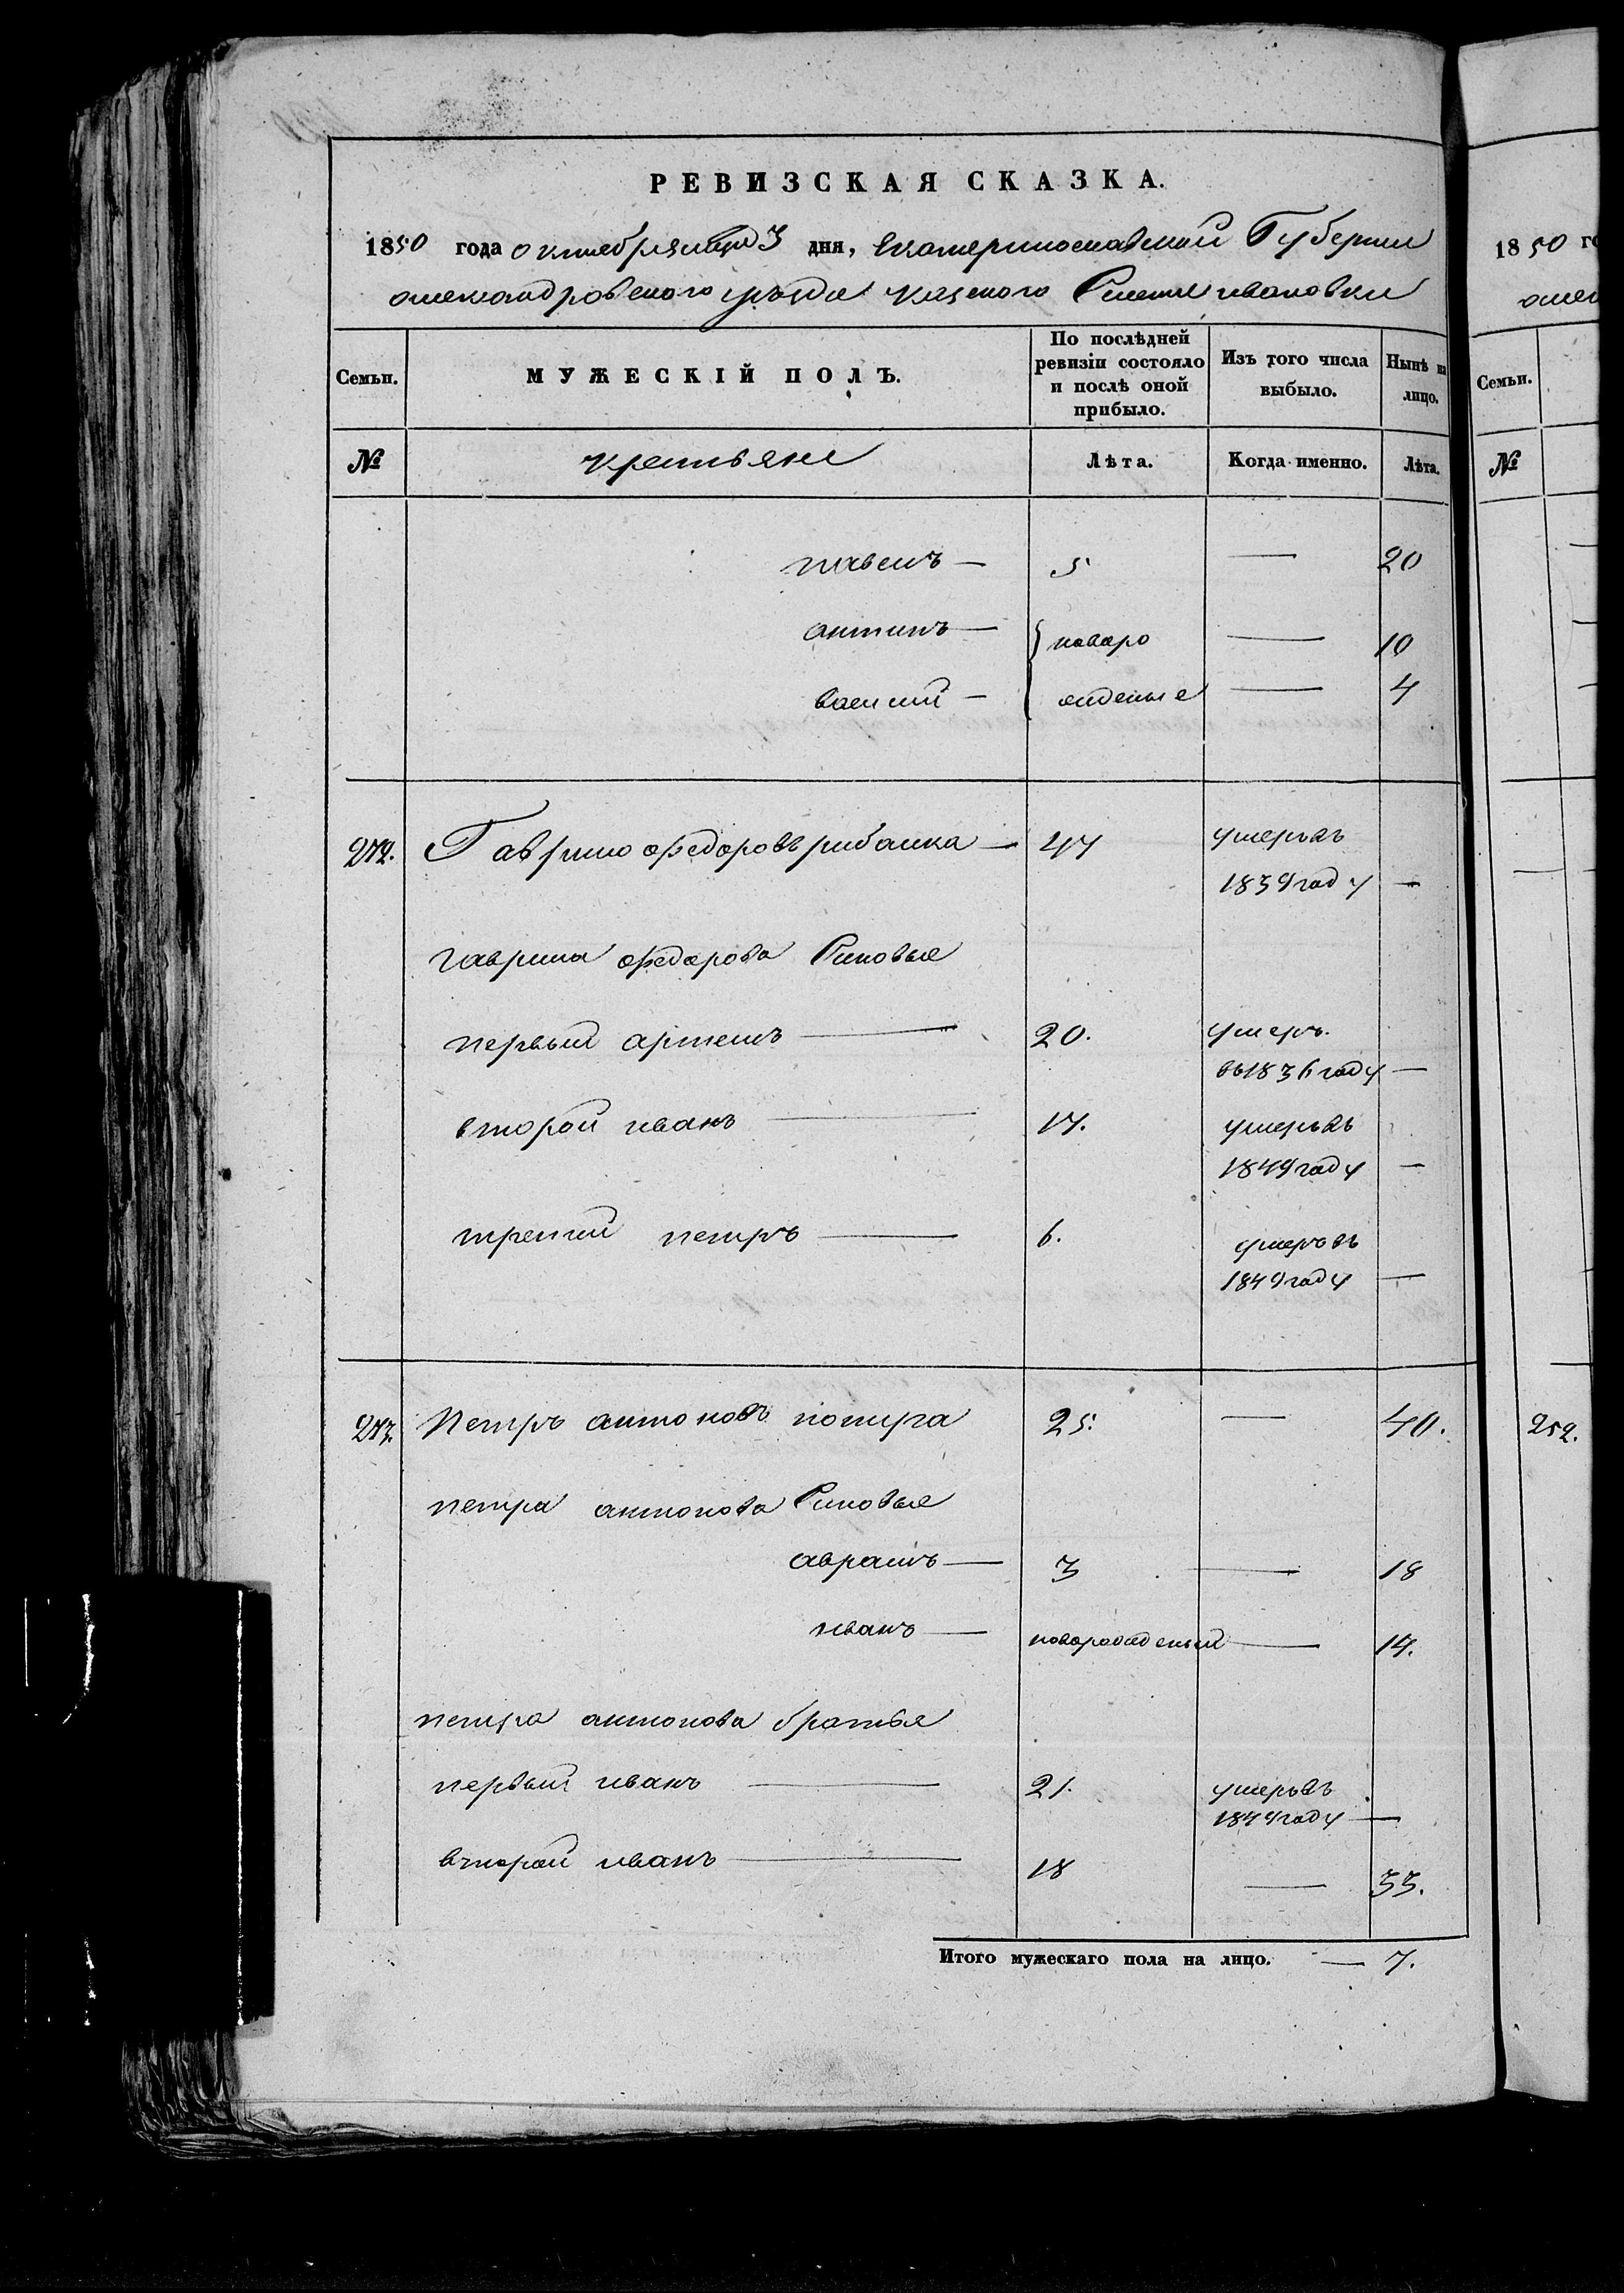 РЕВИЗСКАЯ СКАЗКА.
1850 года октебря 3 дня, Екатеринославской Губернии
олександровского уезда ивановки
Семьи.
МУЖЕСКІЙ ПОЛЪ.
По послѣдней ревизіи состояло и послѣ оной прибыло.
Изъ того числа выбыло.
Нынѣ на лицо.
№ крестьяне Лѣта. Когда именно. Лѣта.
павелъ — 5 — 20
антипъ — } новаро — 10
василий — жденые — 4
272. Гаврило федоровъ рибалка — 47 умеръ въ
1839 году —
гаврила федорова Синовья
первый артемъ — 20. умеръ.
въ 1836 году —
второй иванъ — 17. умеръ въ
1849 году —
третий петръ — 6. умеръ въ
1849 году —
273. Петръ антоновъ 25. — 40.
петра антонова Синовья
аврамъ — 3 — 18
иванъ — новорожденый — 14.
петра антонова братья
первый иванъ — 21. умеръ въ
1849 году —
второй иванъ — 18 — 33.
Итого мужескаго пола на лицо. — 7.
1850 го
олек
Семьи.
№
252.